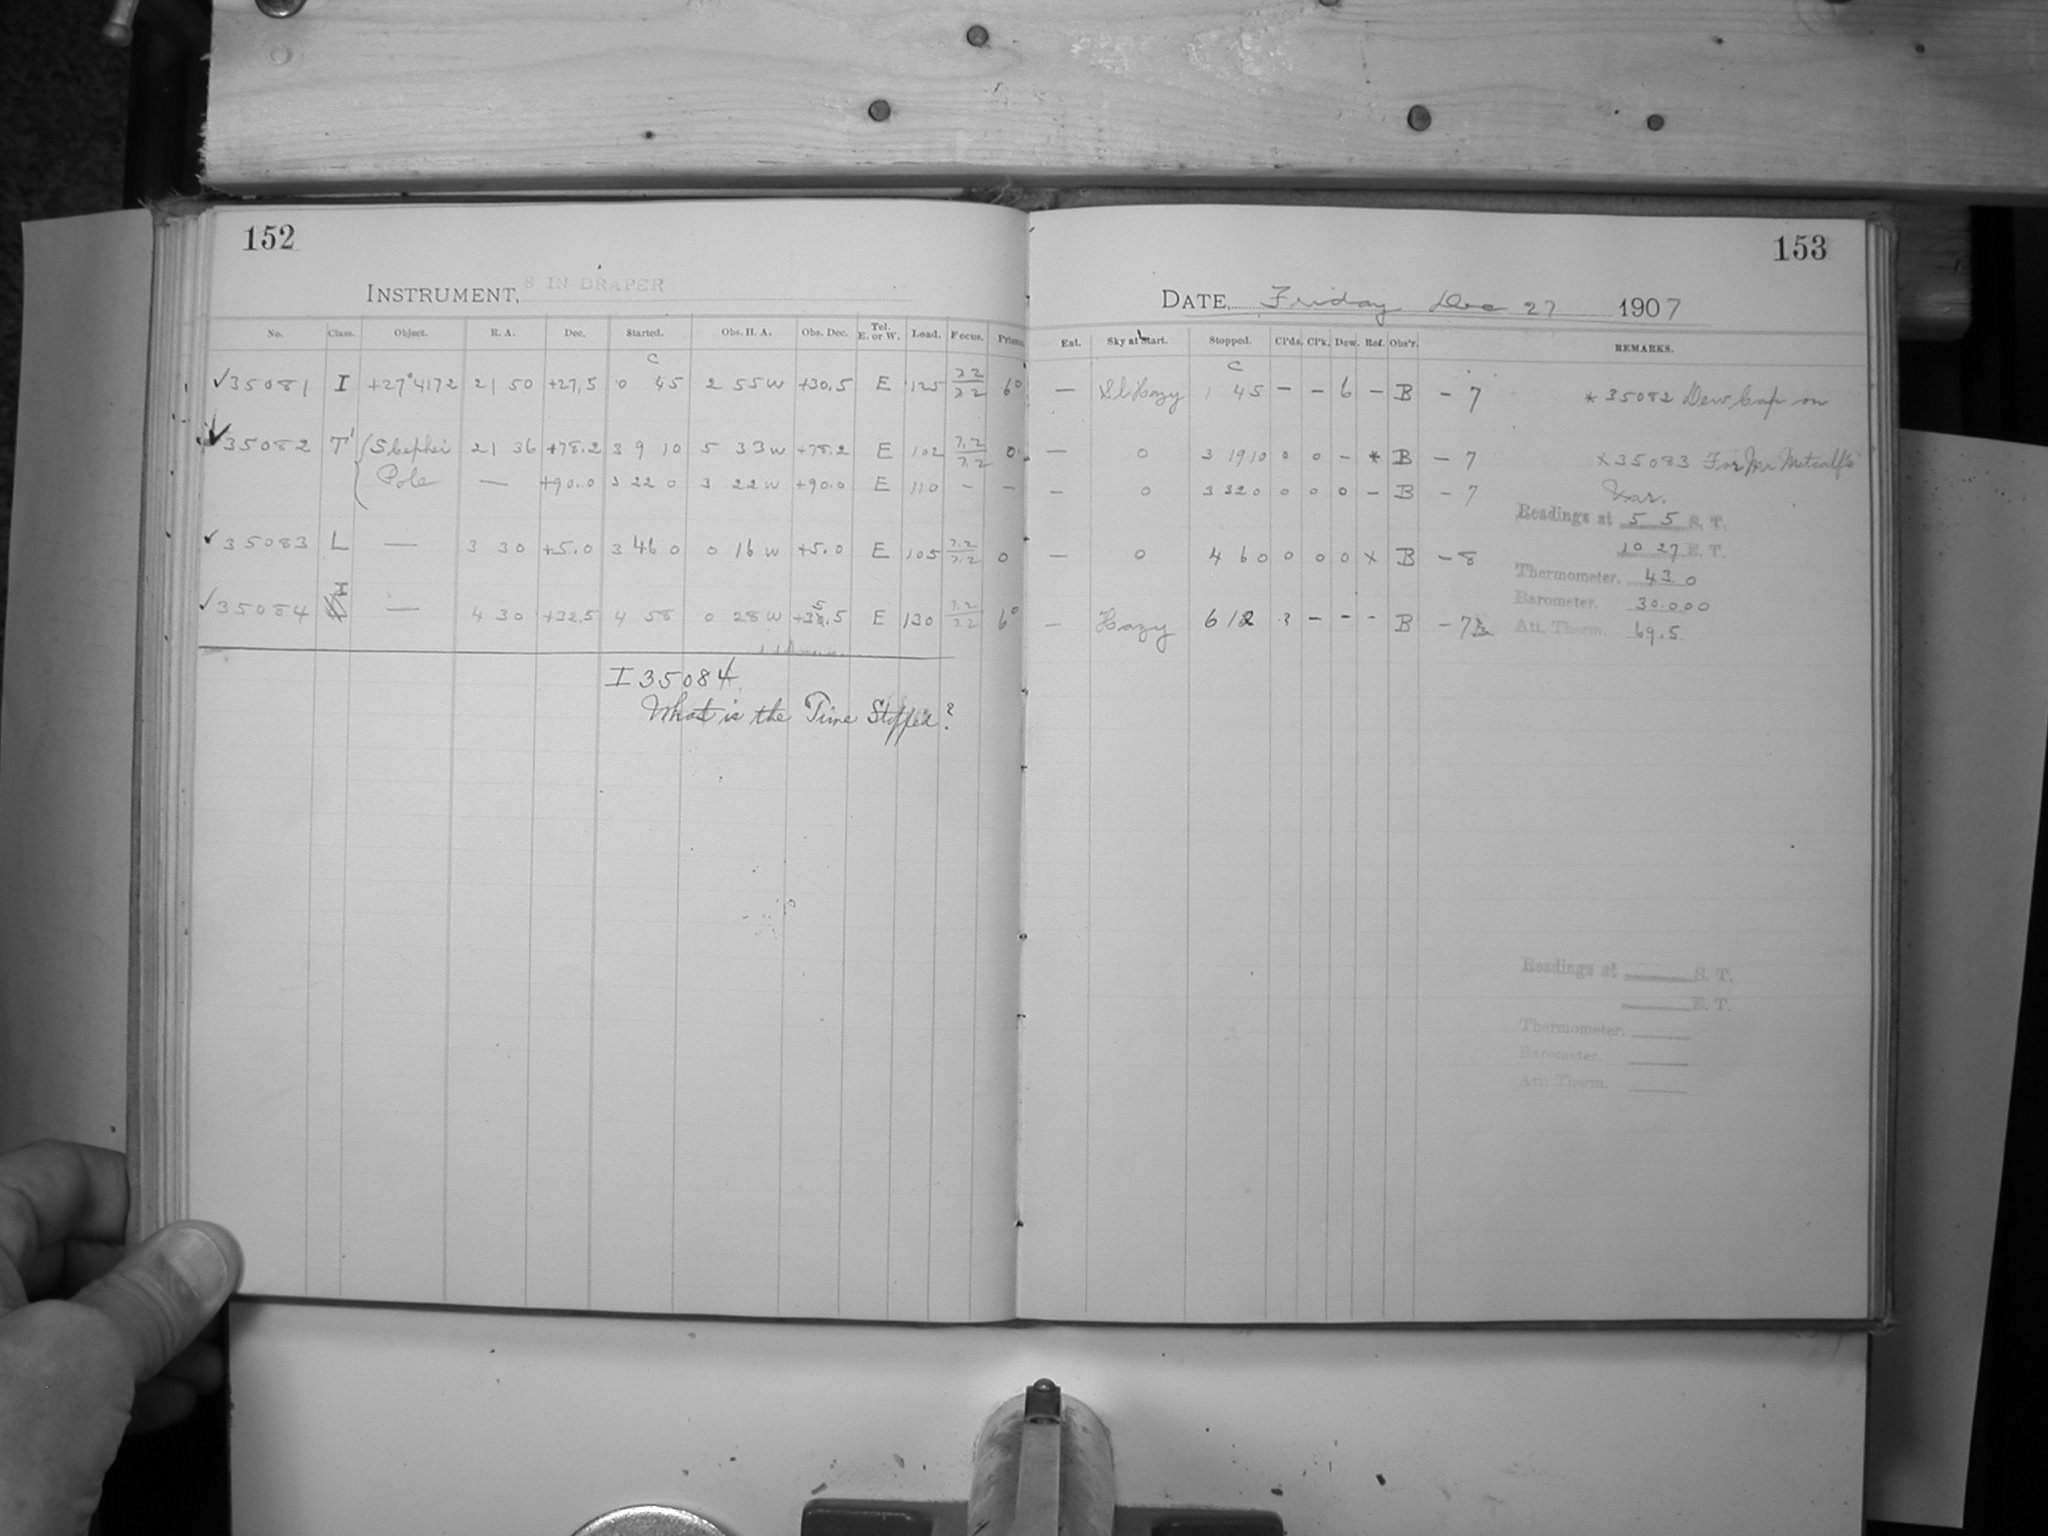 152
INSTRUMENT, 8 IN DRAPER
No. Class. Object. R. A. Dec. Started. Obs. H. A. Obs. Dec. Tel. E. or W. Load. Focus. Prisms.
C
✓35081 I +27°4172 21 50 +27.5 0 45 2 55 W +30.5 E 125 6°
✓35082 T' 21 36 +78.2 3 9 10 5 33 W +78.2 E 102 7.2/7.2 0
Pole — — +90.0 3 22 0 3 22 W +90.0 E 110 – –
✓35083 L — 3 30 +5.0 3 46 0 0 16 W +5.0 E 105 7.2/7.2 0
✓35084 I — 4 30 +32.5 4 58 0 28 W E 130 6°
I 35084
What is the Time Stopped?
153
DATE, Friday Dec 27 1907
Ent. Sky at Start. Stopped. Cl'ds. Cl'k. Dew. Ref. Obs'r. REMARKS.
C
— Sl Hazy 1 45 – – 6 – B – 7 * 35082 Dew Cap on
— 0 3 19 10 0 0 – * B – 7 x 35083 For Mr Metcalf's
— 0 3 32 0 0 0 0 – B – 7 Var.
Readings at 5 5 S. T.
10 27 E. T.
— 0 4 6 0 0 0 0 x B – 8
Thermometer. 43.0
Barometer. 30.000
— Hazy 6 12 ? – – – B – 7
Att. Therm. 69.5
Readings at S. T.
E. T.
Thermometer.
Barometer.
Att. Therm.